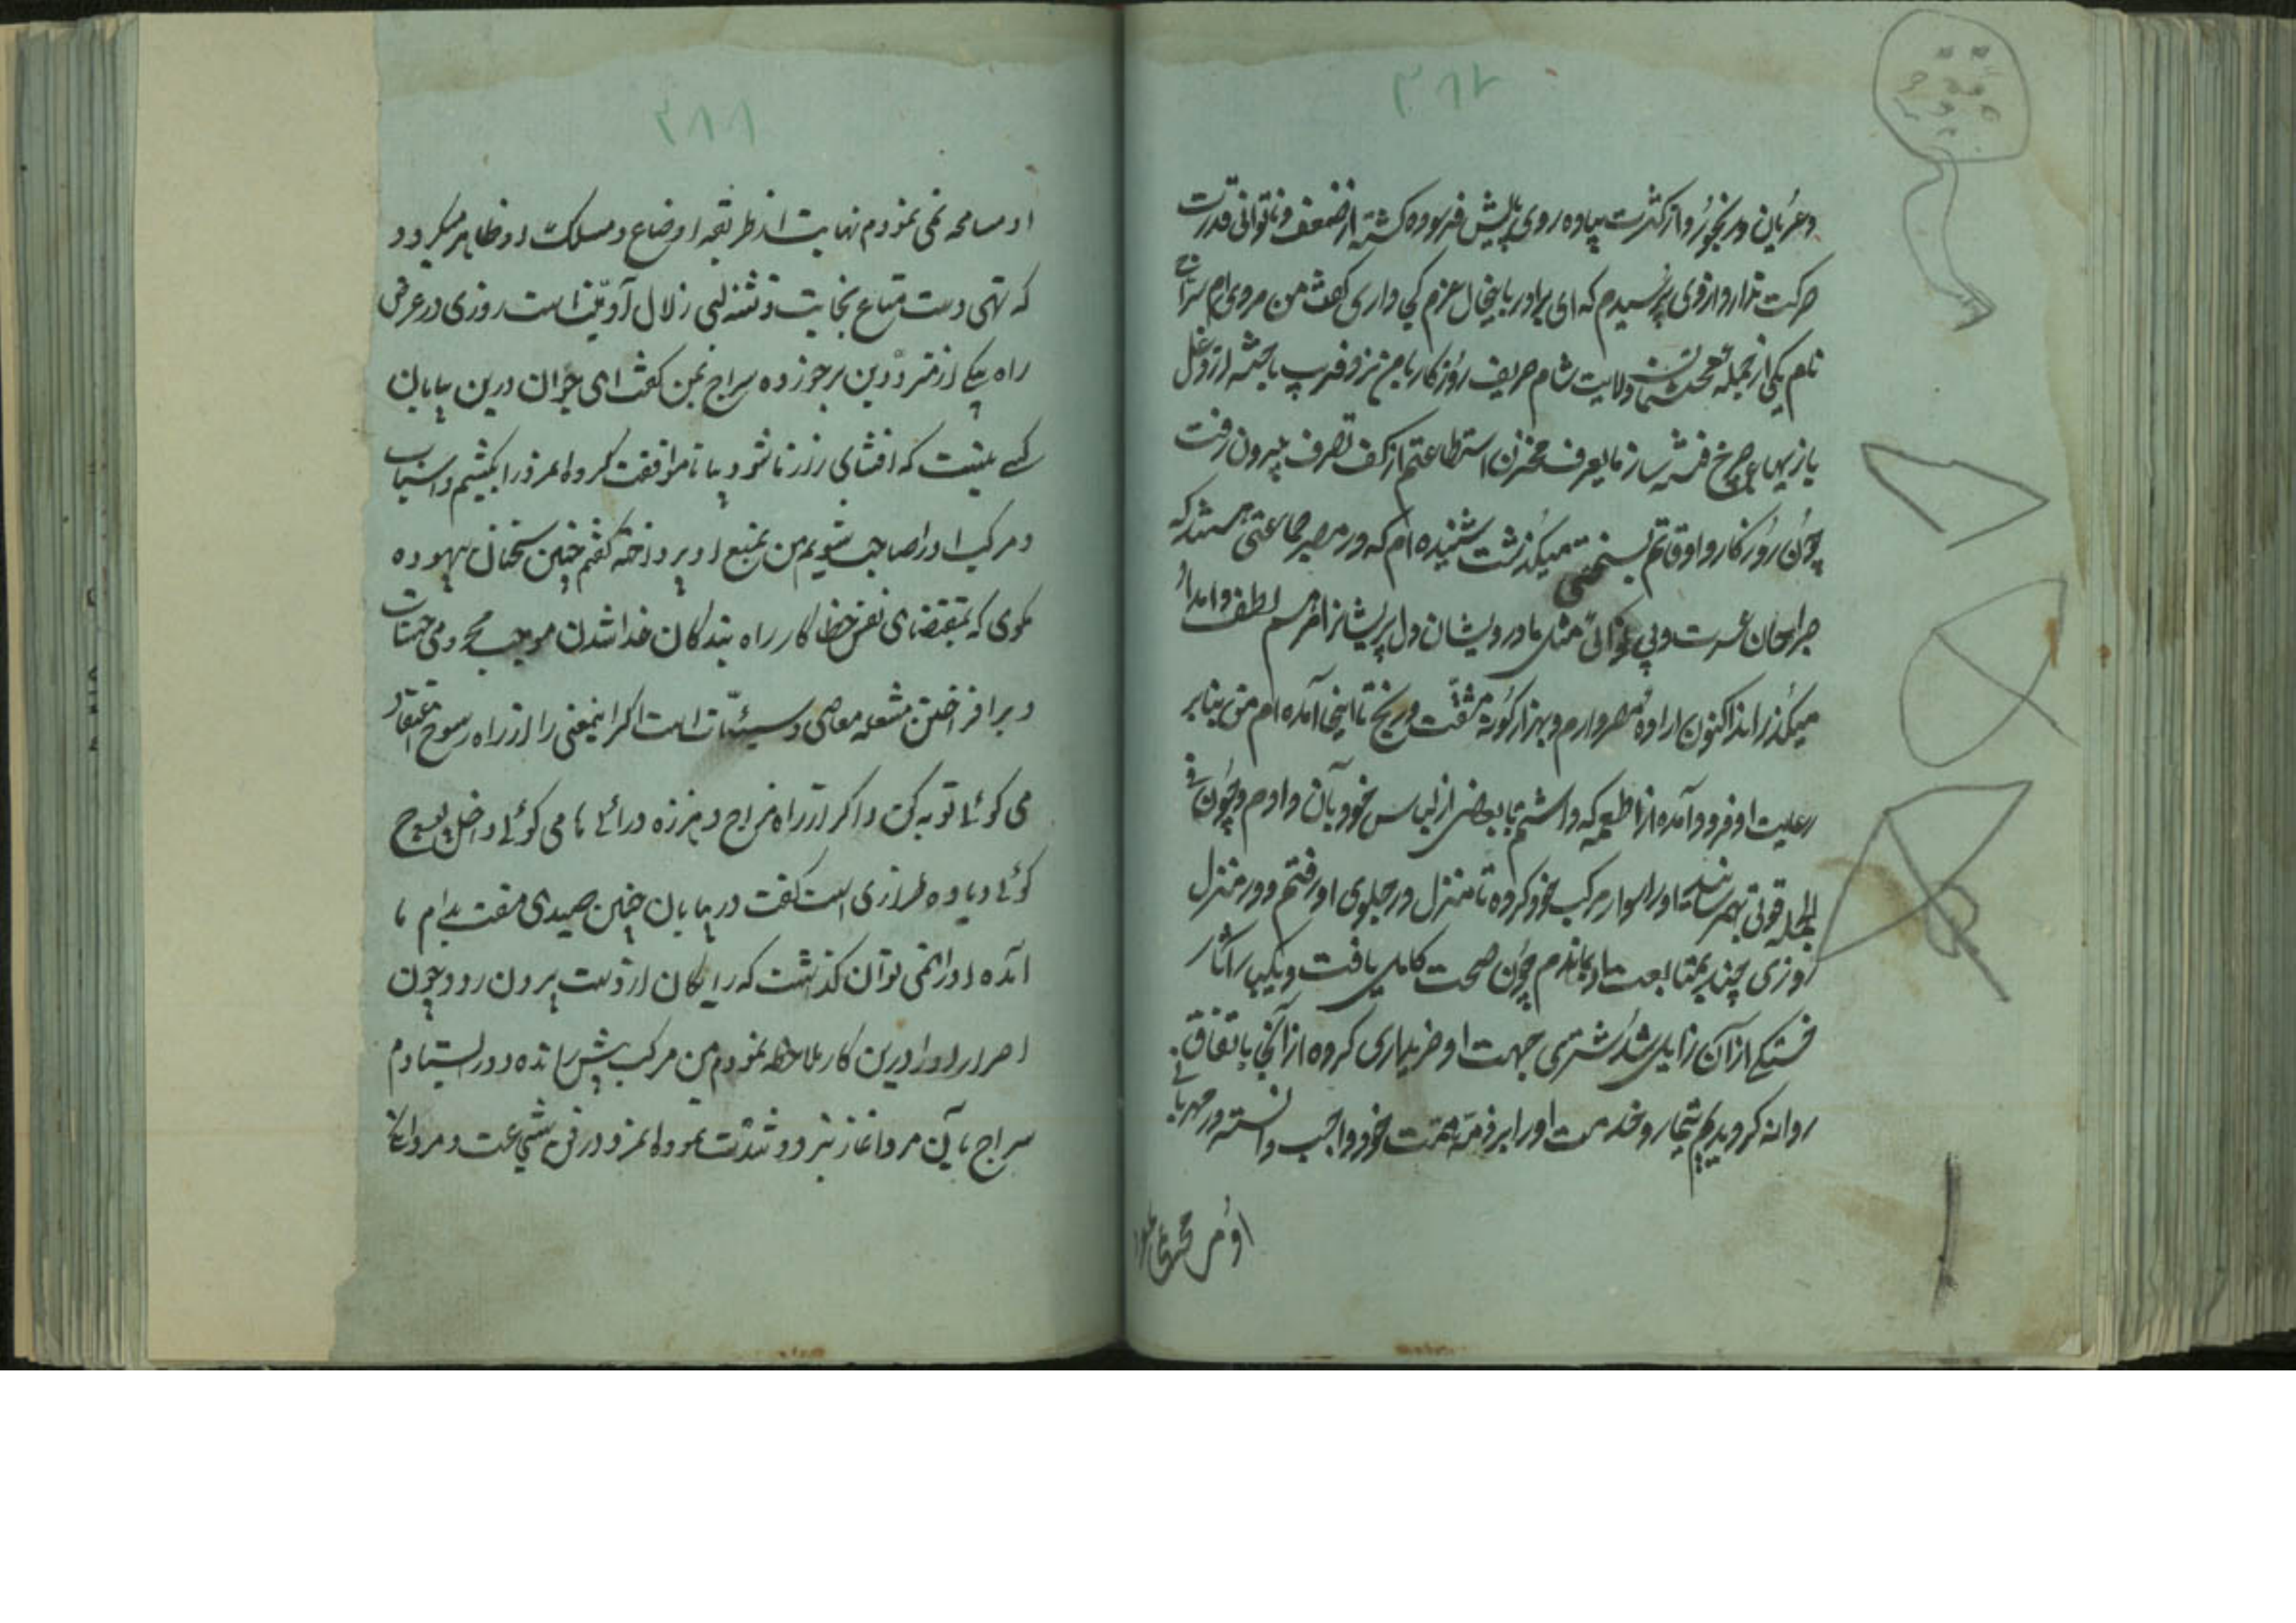 وعریان و رنجور و از کثرت پیاده روی پایش فرسوده کشته از ضعف و ناتوانی قدرت
حرکت ندارد از وی پرسیدم که ای برادر باینحال عزم کجا داری کفت من مردی ام سراج
نام یکی از جمله محتشمان ولایت شام حریف روزکار با من نرد فریب باخته از دغل
بازیهای چرخ استطاعتم از کف تصرف بیرون رفت
چون روزکار و اوقاتم بسختی میکذشت شنیده ام که در مصر جماعتی هستند که
جراحتان عسرت و بی نوائی مثل ما درویشان دل پریشانرا مرهم لطف و امداد
میکذرانند اکنون اراده مصر دارم و بهزار کونه مشقت و رنج تا اینجا آمده ام من بنابر
رعایت او فرود آمده از اطعمه که داشتم با بعضی از لباس خود بآن دادم و چون فی
الجمله قوتی بهم رسانید او را سوار مرکب خود کرده تا منزل در جلوی او رفتم و در منزل
روزی چند بمتابعت او بماندم چون صحت کامل یافت و یکبار آثار
خستکی از آن زایل شد شتری جهت او خریداری کرده از آنجا باتفاق
روانه کردیدیم تیمار و خدمت او را بر ذمه همت خود واجب دانسته در مهربانی
او مسامحه نمی نمودم نهایت از طریقه اوضاع و مسلک او ظاهر میکردد
که تهی دست متاع نجابت و تشنه لب زلال آدمیت است روزی در عرض
راه یکی از متردّدین برخورده سراج بمن کفت ای جوان درین بیابان
کسی نیست که افشای راز ما شود بیا تا موافقت کرده این مرد را بکشیم و اسباب
و مرکب او را صاحب شویم من بمنع او پرداخته کفتم چنین سخنان بیهوده
مکوی که بمقتضای نفس خطا کار راه بندکان خدا شدن موجب محرومی حسنات
و برافراختن مشعله معاصی و سیئات است اکر اینمعنی را از راه رسوخ اعتقاد
می کوئی توبه کن و اکر از راه مزاج و هرزه درائی ها می کوئی داخل پوچ
کوئی و یاوه طرازی است کفت در بیابان چنین صیدی مفت بدام ما
آمده او را نمی توان کذاشت که رایکان از دست بیرون رود چون
اصرار او را درین کار ملاحظه نمودم من مرکب پیش رانده دور ایستادم
سراج با آن مرد آغاز نبرد و شدت نموده آن مرد در فن شجاعت و مردانکی